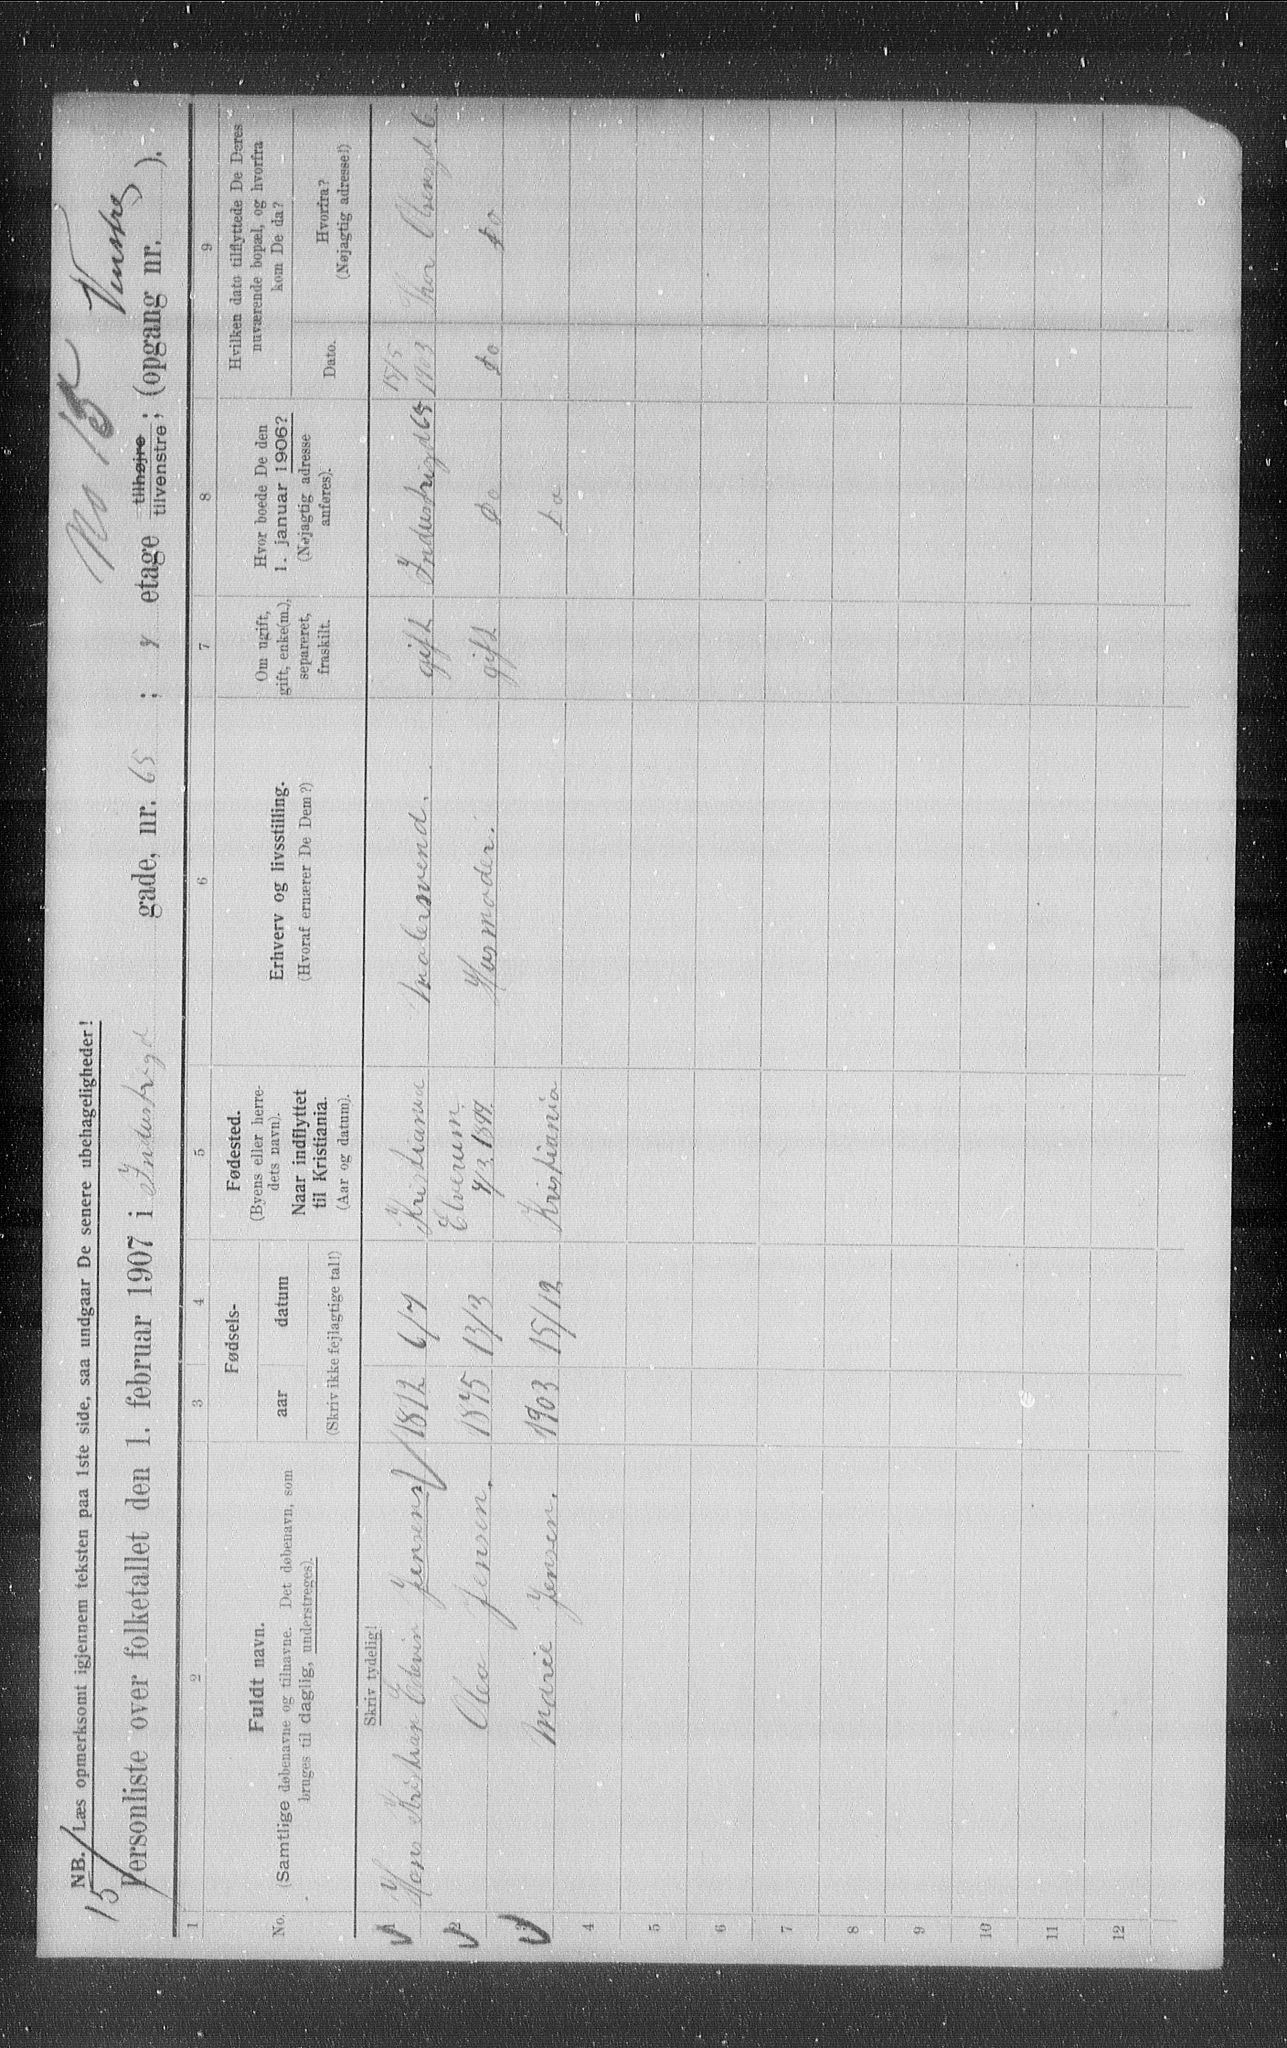 NB. Læs opmerksomt igjennem teksten paa 1ste side, saa undgaar De senere ubehageligheder!
No 15
15
Venstre
Personliste over folketallet den 1. februar 1907 i Industrigd gade, nr. 65 ; etage tilhøjre tilvenstre; (opgang nr. ).
1 2 3 4 5 6 7 8 9
No.
Fuldt navn.
(Samtlige døbenavne og tilnavne. Det døbenavn, som
bruges til daglig, understreges).
Fødsels-
aar datum
(Skriv ikke fejlagtige tal!)
Fødested.
(Byens eller herre-
dets navn).
Naar indflyttet
til Kristiania.
(Aar og datum).
Erhverv og livsstilling.
(Hvoraf ernærer De Dem?)
Om ugift,
gift, enke(m.),
separeret,
fraskilt.
Hvor boede De den
1. januar 1906?
(Nøjagtig adresse
anføres).
Hvilken dato tilflyttede De Deres
nuværende bopæl, og hvorfra
kom De da?
Dato.
Hvorfra?
(Nøjagtig adresse!)
Skriv tydelig!
1 Hans Kristian Edevin Jensen 1872 6/7 Kristiania Malersvend. gift Industrigd 65 15/5 1903 Thor Olsensgd 6
2 Olea Jensen. 1875 13/3 Elverum 4/3 1899. Husmoder. gift Do Do Do
3 Marie Jensen. 1903 15/12 Kristiania Do
4
5
6
7
8
9
10
11
12